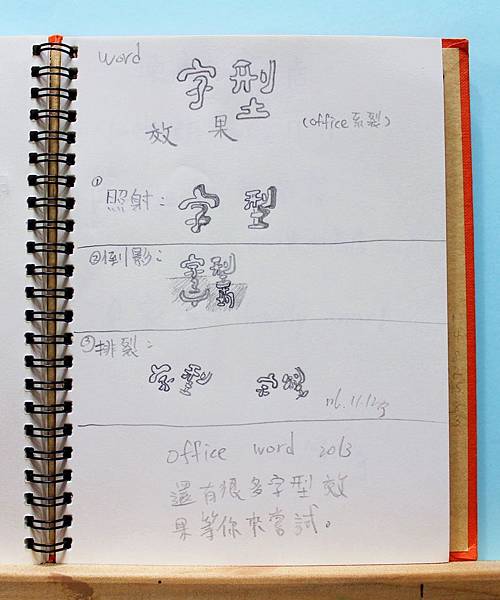 word
字型
效果 (office系裂)
① 照射： 字 型
②倒影： 字型
③排裂：
字型 字型
office word 2013
還有很多字型效
果等你來嘗試。